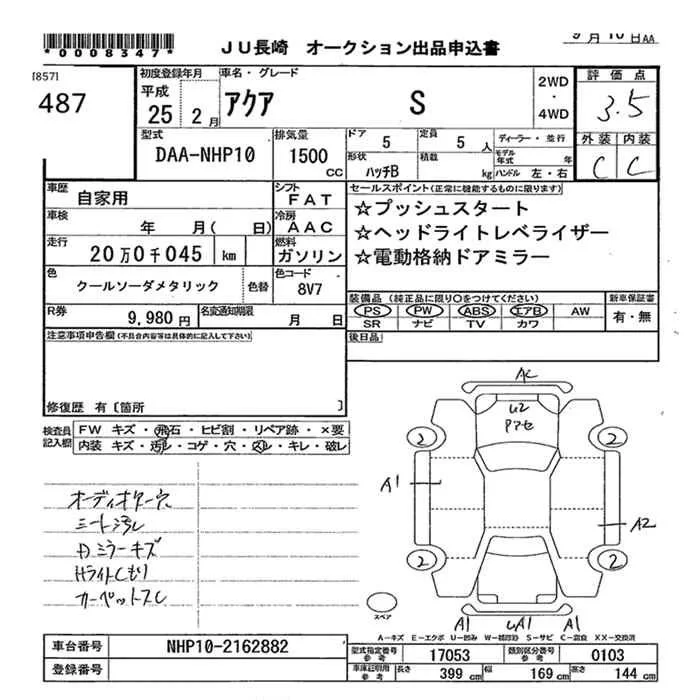 *0008347*
JU長崎 オークション出品申込書
9月10日AA
[857]
487
初度登録年月
平成
25 2月
車名・グレード
アクア S
2WD
・
4WD
評価点
3.5
外装 内装
C C
型式
DAA-NHP10
排気量
1500 CC
ドア 5
定員 5人
ディーラー・並行
モデル年式 年
形状 ハッチB
積載 kg
ハンドル 左・右
車歴 自家用
シフト FAT
車検 年 月( 日)
冷房 AAC
走行 20万0千045 km
燃料 ガソリン
色 クールソーダメタリック 色替
色コード 8V7
R券 9,980円
名変通知期限 月 日
セールスポイント(正常に機能するものに限ります)
☆プッシュスタート
☆ヘッドライトレベライザー
☆電動格納ドアミラー
装備品 (純正品に限り○をつけてください)
PS PW ABS エアB AW
SR ナビ TV カワ
新車保証書
有・無
後日品
注意事項申告欄(不具合内容等は具体的に記入して下さい)
修復歴 有〔箇所 〕
検査員記入欄
FW キズ・飛石・ヒビ割・リペア跡・×要
内装 キズ・汚レ・コゲ・穴・スレ・キレ・破レ
シート汚レ
Dミラーキズ
Hライトくもり
カーペットスレ
U2
2 2
A1
A2
2 2
A1 A1
スペア
A-キズ E-エクボ U-凹み W-補修跡 S-サビ C-腐食 XX-交換済
車台番号 NHP10-2162882
登録番号
型式指定番号 参考 17053
類別区分番号 参考 0103
車庫証明用 参考
長さ 399 cm
幅 169 cm
高さ 144 cm